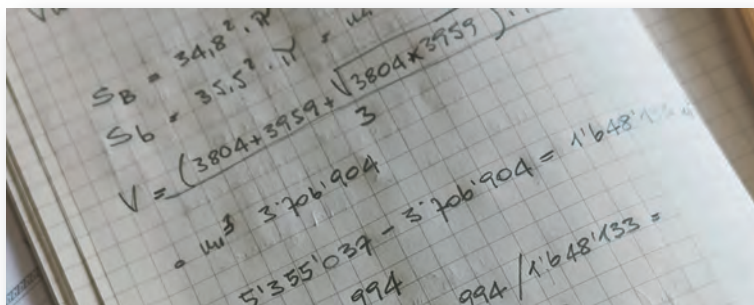 S_B = 34,8² · π
S_b = 35,5² · π =
V = (3804+3959+√3804×3959)
3
m³ 3'706'904
5'355'037 - 3'706'904 = 1'648'1
994 994/1'648'133 =